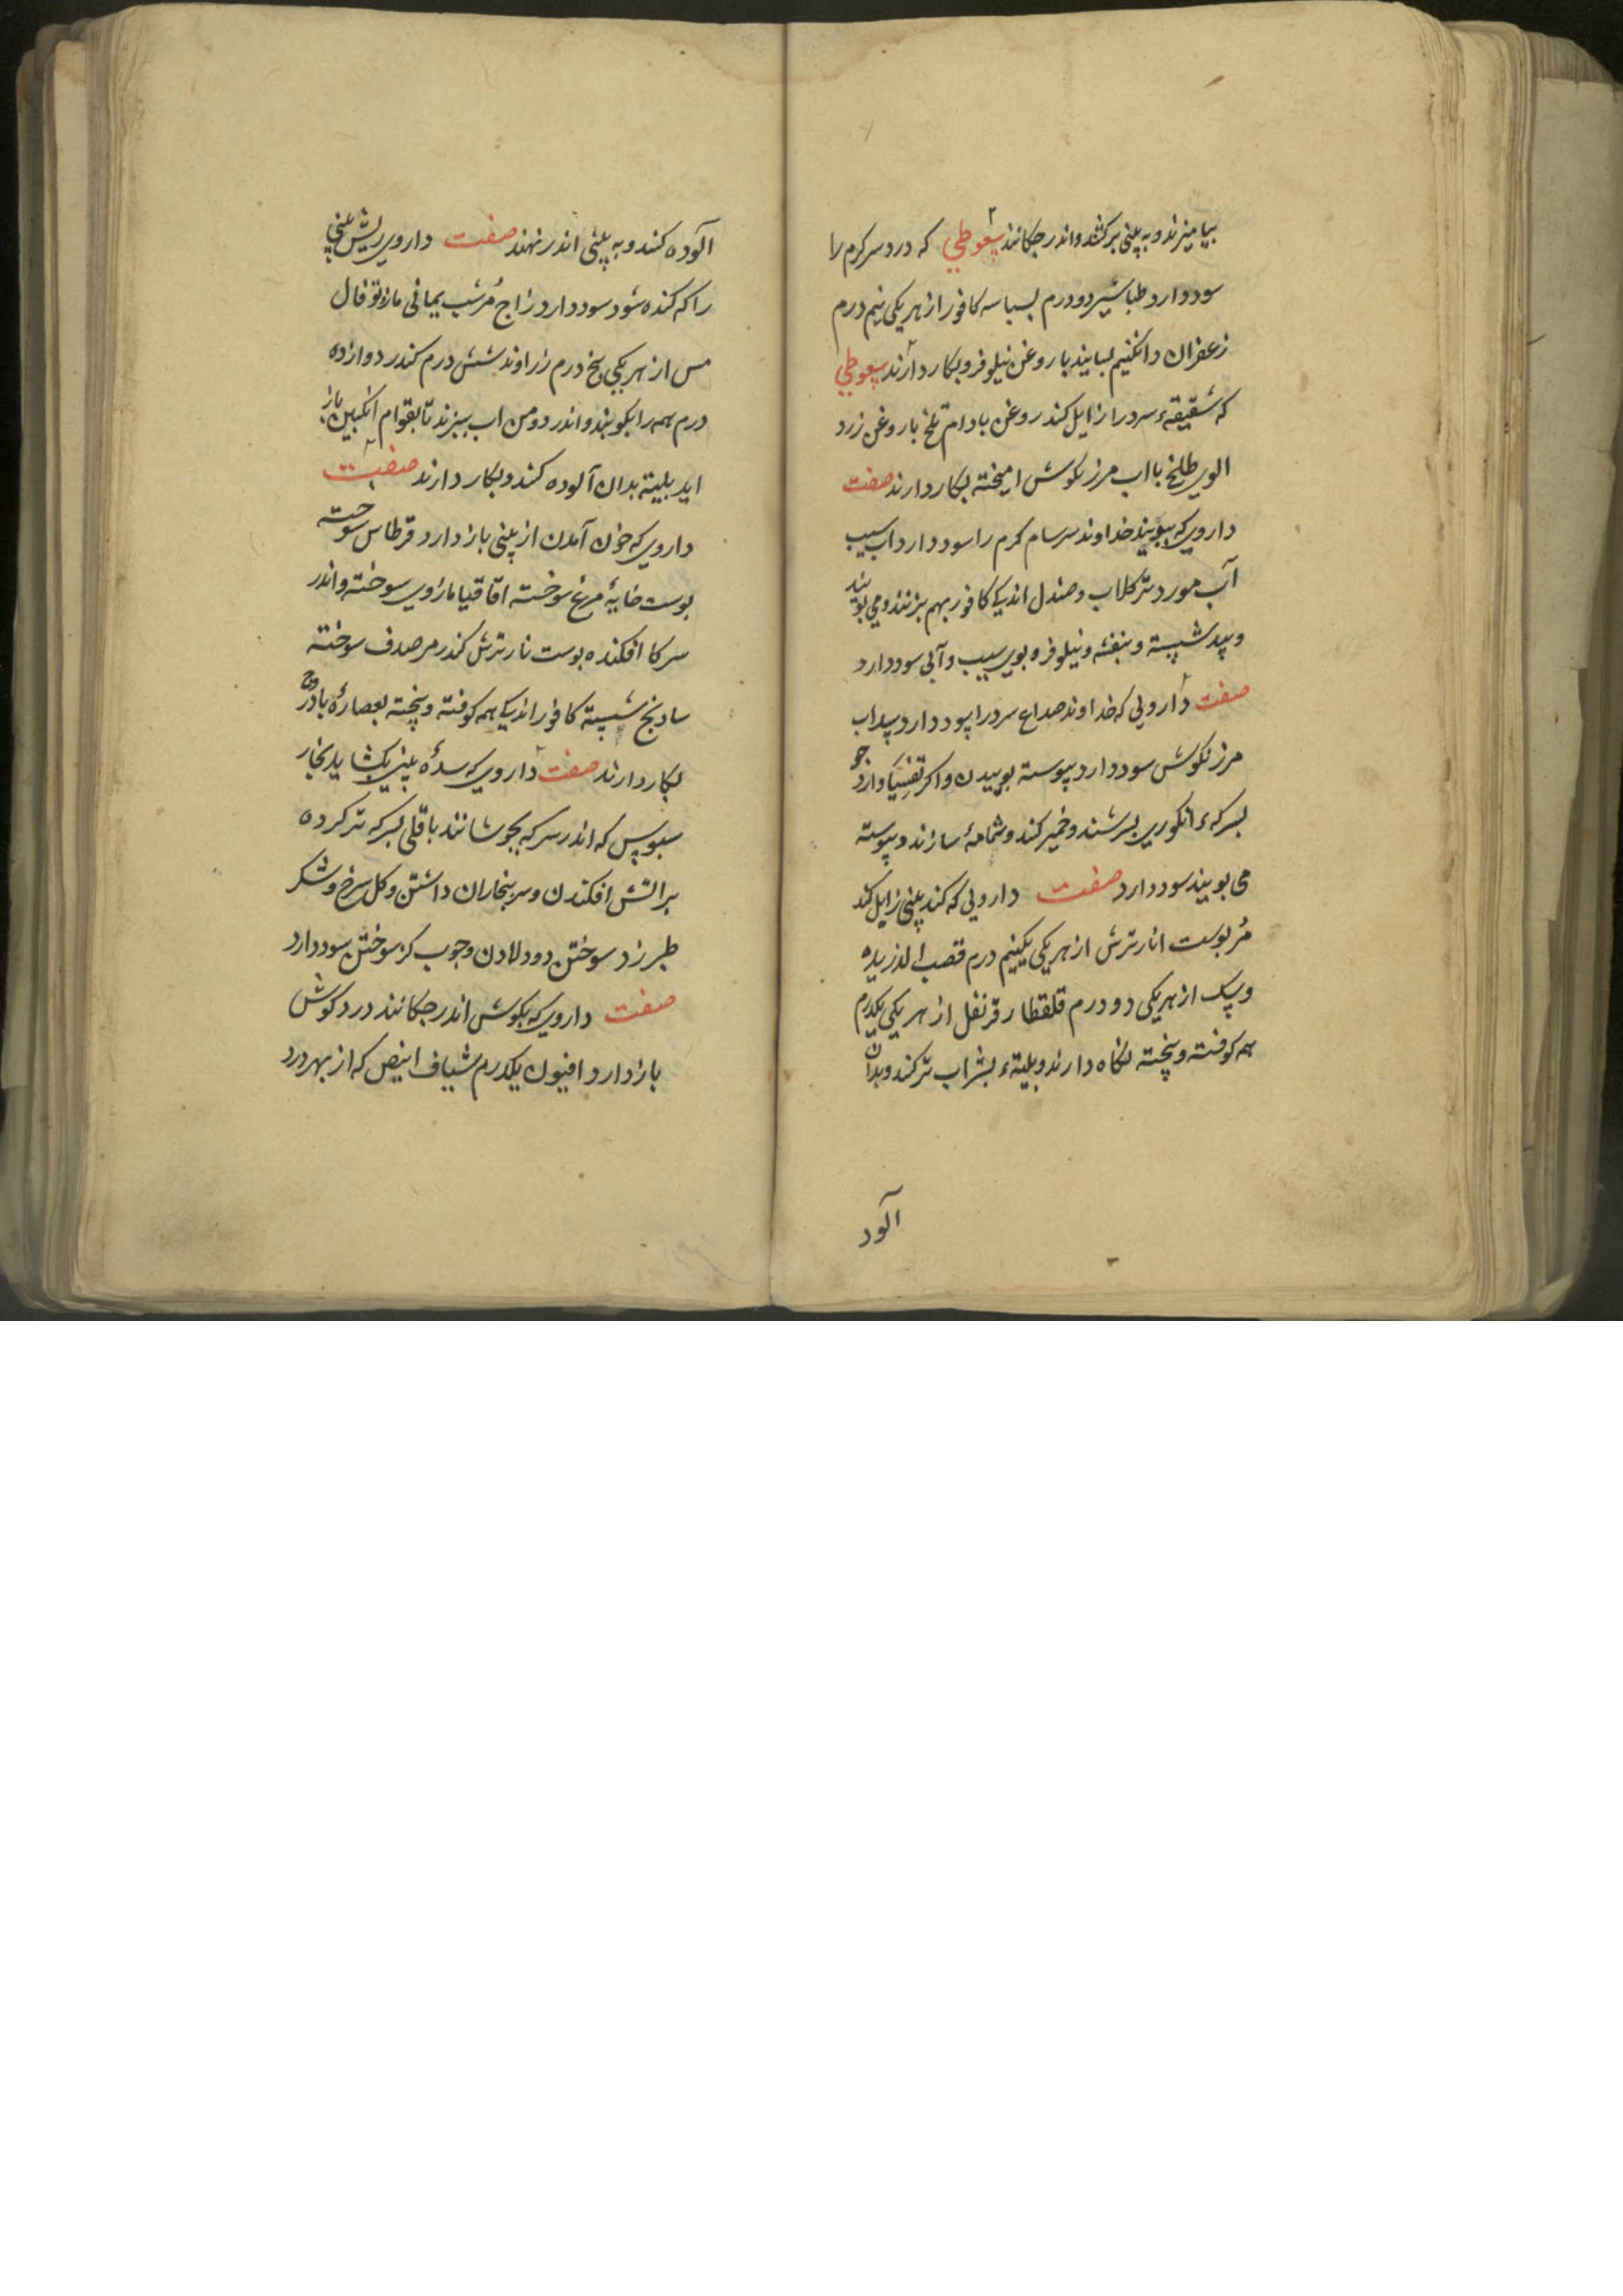 بیامیزند و به بینی برکشند و اندر چکانند سعوطی که درد سر کرم را
سود دارد طباشیر دو درم بسباسه کافور از هر یکی نیم درم
زعفران دانکنیم بسایند با روغن نیلوفر و بکار دارند سعوطی
که شقیقهء سرد را زایل کند روغن بادام تلخ با روغن زرد
الوی طلخ با اب مرزنکوش امیخته بکار دارند صفت
داروی که ببویند خداوند سرسام کرم را سود دارد اب سیب
آب مورد تر کلاب و صندل اندکی کافور بهم بزنند و می بویند
و بید شسته و بنفشه و نیلوفر و بوی سیب و آبی سود دارد
صفت دارویی که خداوند صداع سرد را سود دارد سداب
مرزنکوش سود دارد پیوسته بوییدن و اکر تفسیا و ارد جو
بسرکهء انکوری بسرشند و خمیر کند و شمامهٔ سازند و پیوسته
می بویند سود دارد صفت دارویی که کند بینی زایل کند
مُر بوست انار ترش از هر یکی یکنیم درم قصب الذریره
و سک از هر یکی دو درم قلقطار قرنفل از هر یکی یکدرم
همه کوفته و پخته نکاه دارند و بلیتهء بشراب تر کند و بدان
آلود
الوده کنند و به بینی اندر نهند صفت داروی ریش بینی
را که کنده شود سود دارد زاج مُر شب یمانی مازو توفال
مس از هر یکی پنج درم زراوند شش درم کندر دوازده
درم همه را بکوبند و اندر دو من اب ببزند تا بقوام انکبین باز
اید بلیته بدان آلوده کنند و بکار دارند صفت
داروی که خون آمدن از بینی باز دارد قرطاس سوخته
بوست خایهٔ مرغ سوخته اقاقیا مازوی سوخته و اندر
سرکا افکنده بوست نار ترش کندر مر صدف سوخته
سادنج شسته کافور اندکی همه کوفته و پخته بعصارهٔ بادروج
بکار دارند صفت داروی که سدهٔ بینی بکشاید بخار
سبوس که اندر سرکه بجوشانند باقلی بسرکه تر کرده
بر اتش افکندن و سر ببخار ان داشتن و کل سرخ و شکر
طبرزد سوختن دود لادن و جوب کز سوختن سود دارد
صفت داروی که بکوش اندر جکانند درد کوش
باز دارد افیون یکدرم شیاف ابیض که از بهر درد